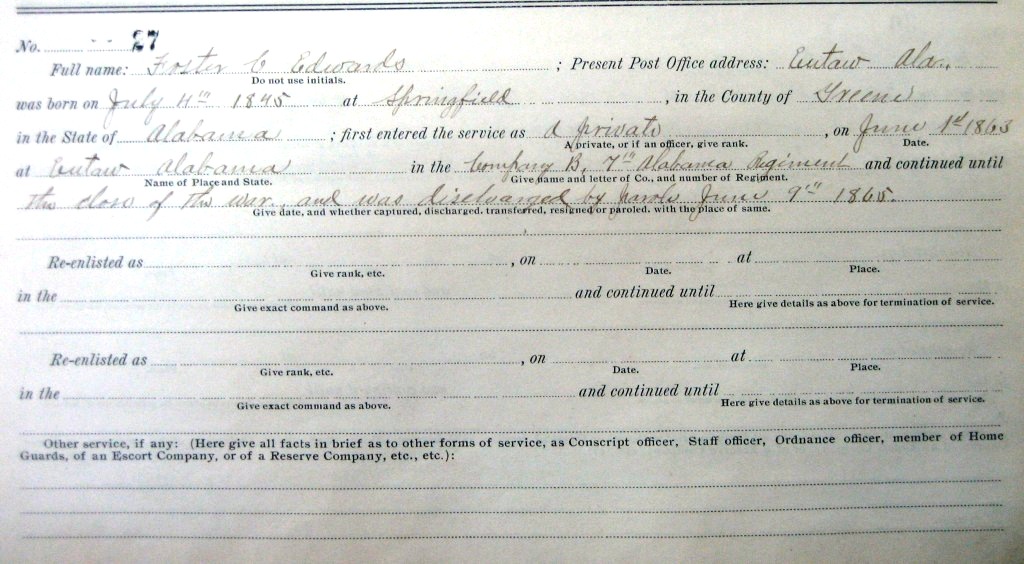 No. 27
Full name: Foster C Edwards ; Present Post Office address: Eutaw Ala.
Do not use initials.
was born on July 4th 1845 at Springfield , in the County of Greene
in the State of Alabama ; first entered the service as a private , on June 1st 1863
A private, or if an officer, give rank. Date.
at Eutaw Alabama in the Company B, 7th Alabama Regiment and continued until
Name of Place and State. Give name and letter of Co., and number of Regiment.
the close of the war, and was discharged by parole June 9th 1865.
Give date, and whether captured, discharged, transferred, resigned or paroled, with the place of same.
Re-enlisted as , on at
Give rank, etc. Date. Place.
in the and continued until
Give exact command as above. Here give details as above for termination of service.
Re-enlisted as , on at
Give rank, etc. Date. Place.
in the and continued until
Give exact command as above. Here give details as above for termination of service.
Other service, if any: (Here give all facts in brief as to other forms of service, as Conscript officer, Staff officer, Ordnance officer, member of Home
Guards, of an Escort Company, or of a Reserve Company, etc., etc.):